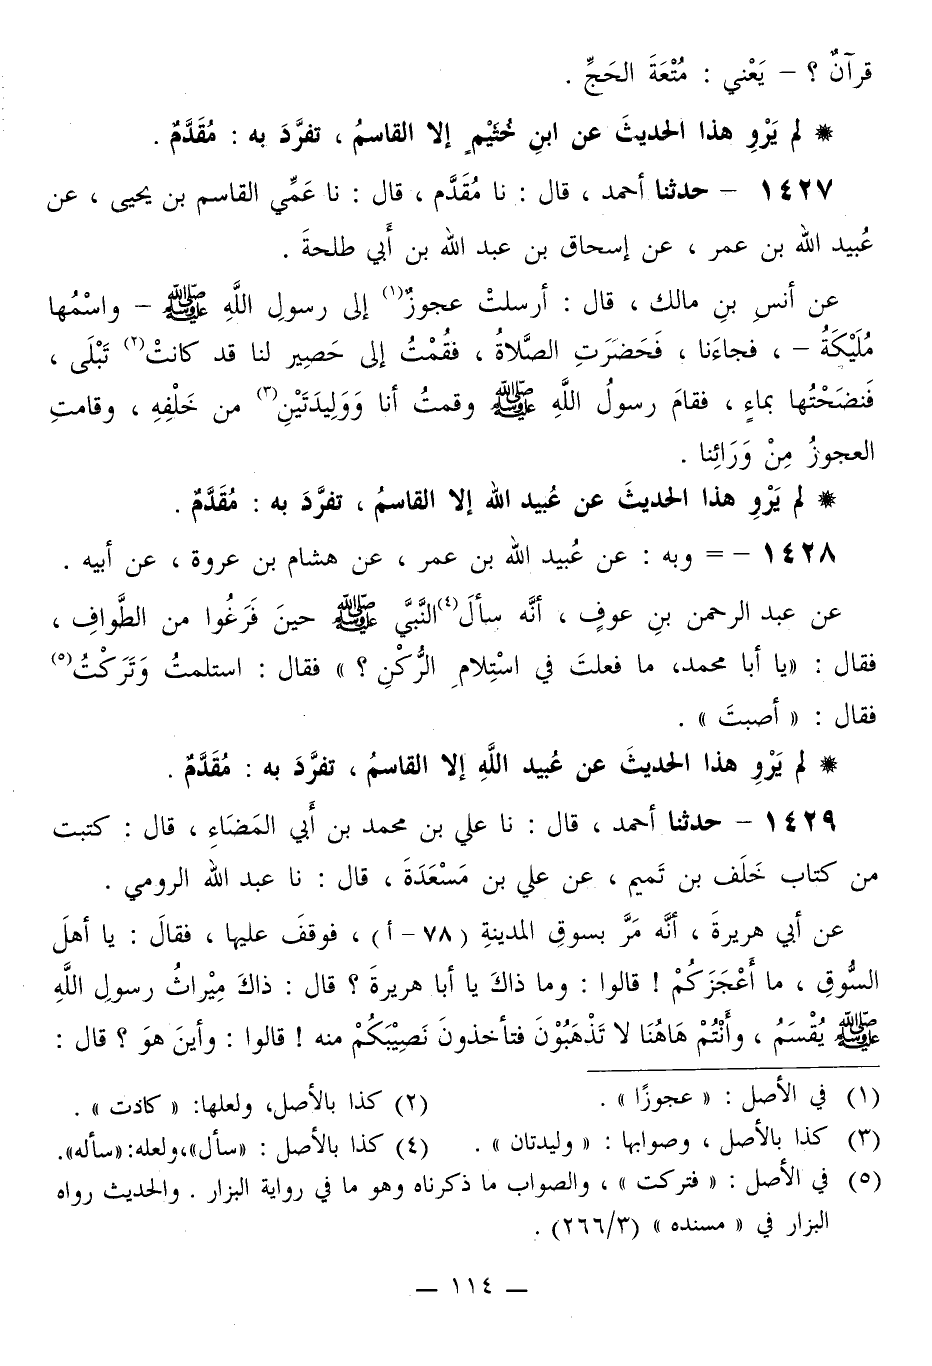 قرآنٌ ؟ – يَعْني : مُتْعَةَ الحَجِّ .
* لم يَرْوِ هذا الحديثَ عن ابنِ خُثَيْمٍ إلا القاسمُ ، تفرَّدَ به : مُقَدَّمٌ .
١٤٢٧ – حدثنا أحمد ، قال : نا مُقَدَّم ، قال : نا عَمِّي القاسم بن يحيى ، عن
عُبيد الله بن عمر ، عن إسحاق بن عبد الله بن أَبي طلحةَ .
عن أنسِ بنِ مالك ، قال : أرسلتْ عجوزٌ(١) إلى رسولِ اللَّهِ ﷺ – واسْمُها
مُلَيْكَةُ – ، فجاءَنا ، فَحَضَرَتِ الصَّلاةُ ، فقُمْتُ إلى حَصِير لنا قد كانتْ(٢) تَبْلَى ،
فَنضَحْتُها بماءٍ ، فقامَ رسولُ اللَّهِ ﷺ وقمتُ أنا وَوَلِيدَتَيْنِ(٣) من خَلْفِهِ ، وقامتِ
العجوزُ مِنْ وَرَائِنا .
* لم يَرْوِ هذا الحديثَ عن عُبيد الله إلا القاسمُ ، تفرَّدَ به : مُقَدَّمٌ .
١٤٢٨ – = وبه : عن عُبيد الله بن عمر ، عن هشام بن عروة ، عن أبيه .
عن عبد الرحمن بنِ عوفٍ ، أنَّه سألَ(٤) النَّبيَّ ﷺ حينَ فَرَغُوا من الطَّوافِ ،
فقال : «يا أبا محمد، ما فعلتَ في اسْتِلامِ الرُّكْنِ ؟ » فقال : استلمتُ وَتَرَكْتُ(٥)
فقال : « أصبتَ » .
* لم يَرْوِ هذا الحديثَ عن عُبيد اللَّهِ إلا القاسمُ ، تفرَّدَ به : مُقَدَّمٌ .
١٤٢٩ – حدثنا أحمد ، قال : نا علي بن محمد بن أَبي المَضَاءِ ، قال : كتبت
من كتاب خَلَف بن تَميم ، عن علي بن مَسْعَدَةَ ، قال : نا عبد الله الرومي .
عن أبي هريرةَ ، أنَّه مَرَّ بسوقِ المدينةِ (٧٨ – أ) ، فوقفَ عليها ، فقالَ : يا أهلَ
السُّوقِ ، ما أَعْجَزَكُمْ ! قالوا : وما ذاكَ يا أبا هريرةَ ؟ قال : ذاكَ مِيْراثُ رسولِ اللَّهِ
ﷺ يُقْسَمُ ، وأَنْتُمْ هَاهُنَا لا تَذْهَبُوْنَ فتأخذونَ نَصِيْبَكُمْ منه ! قالوا : وأينَ هوَ ؟ قال :
(١) في الأصل : « عجوزًا » . (٢) كذا بالأصل، ولعلها: « كادت » .
(٣) كذا بالأصل ، وصوابها : « وليدتان » . (٤) كذا بالأصل : «سأل»،ولعله:«سأله».
(٥) في الأصل : « فتركت » ، والصواب ما ذكرناه وهو ما في رواية البزار . والحديث رواه
البزار في « مسنده » (٢٦٦/٣) .
— ١١٤ —